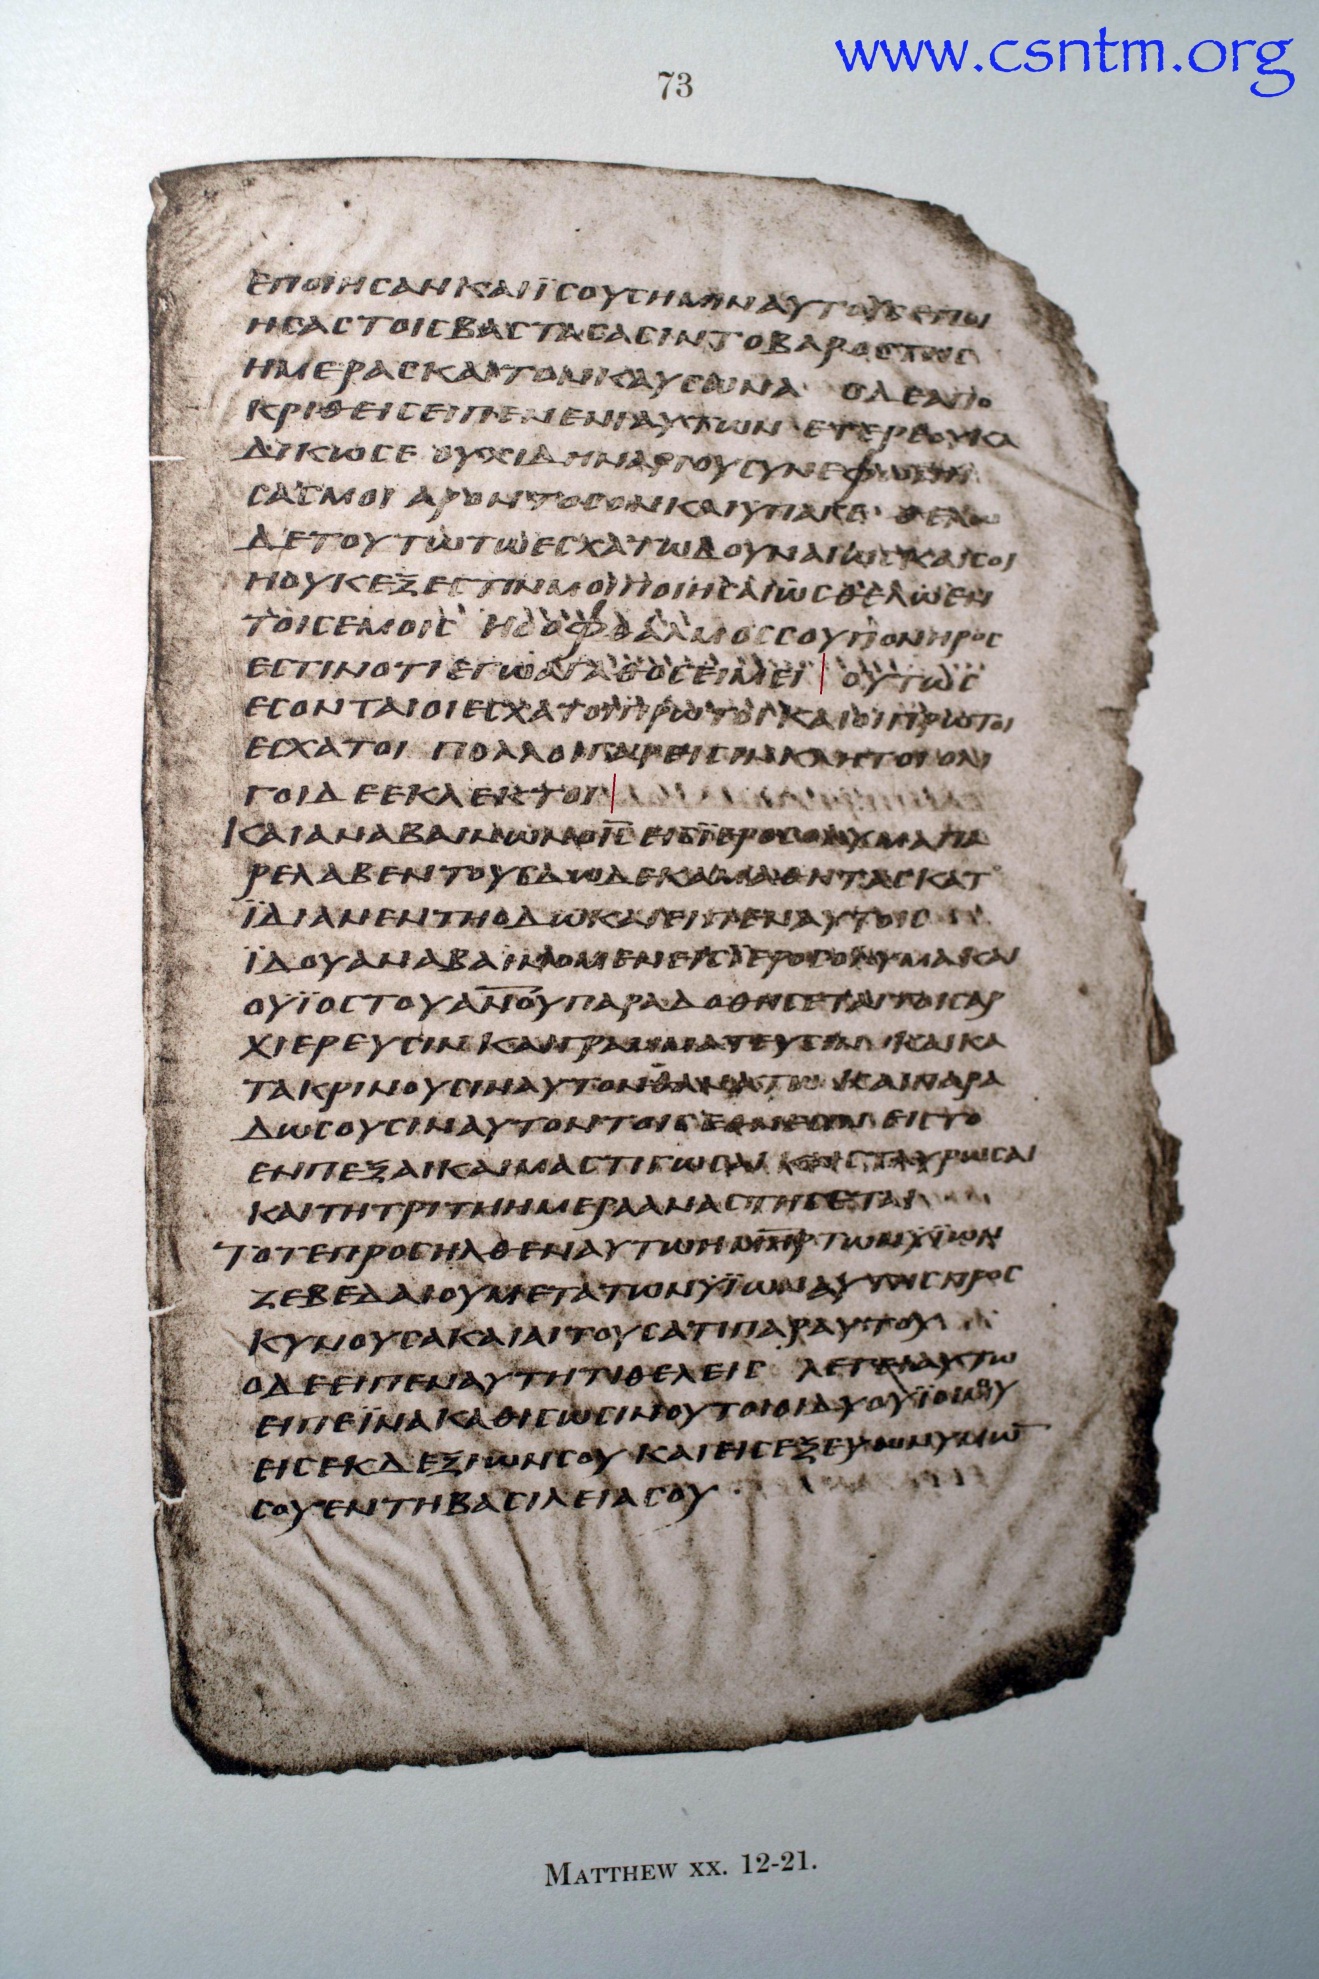 www.csntm.org
73
ΕΠΟΙΗΣΑΝΚΑΙΪΣΟΥΣΗΜΙΝΑΥΤΟΥΣΕΠΟΙ
ΗΣΑΣΤΟΙΣΒΑΣΤΑΣΑΣΙΝΤΟΒΑΡΟΣΤΗΣ
ΗΜΕΡΑΣΚΑΙΤΟΝΚΑΥΣΩΝΑ ΟΔΕΑΠΟ
ΚΡΙΘΕΙΣΕΙΠΕΝΕΝΙΑΥΤΩΝ ΕΤΕΡΕΟΥΚΑ
ΔΙΚΩΣΕ ΟΥΧΙΔΗΝΑΡΙΟΥΣΥΝΕΦΩΝΗ
ΣΑΣΜΟΙ ΑΡΟΝΤΟΣΟΝΚΑΙΥΠΑΓΕ ΘΕΛΩ
ΔΕΤΟΥΤΩΤΩΕΣΧΑΤΩΔΟΥΝΑΙΩΣΚΑΙΣΟΙ
ΗΟΥΚΕΞΕΣΤΙΝΜΟΙΠΟΙΗΣΑΙΩΣΘΕΛΩΕΝ
ΤΟΙΣΕΜΟΙΣ ΗΟΟΦΘΑΛΜΟΣΣΟΥΠΟΝΗΡΟΣ
ΕΣΤΙΝΟΤΙΕΓΩΑΓΑΘΟΣΕΙΜΕΙ ΟΥΤΩΣ
ΕΣΟΝΤΑΙΟΙΕΣΧΑΤΟΙΠΡΩΤΟΙΚΑΙΟΙΠΡΩΤΟΙ
ΕΣΧΑΤΟΙ ΠΟΛΛΟΙΓΑΡΕΙΣΙΝΚΛΗΤΟΙΟΛΙ
ΓΟΙΔΕΕΚΛΕΚΤΟΙ
ΚΑΙΑΝΑΒΑΙΝΩΝΟΙ̅Σ̅ΕΙΣΪΕΡΟΣΟΛΥΜΑΠΑ
ΡΕΛΑΒΕΝΤΟΥΣΔΩΔΕΚΑΜΑΘΗΤΑΣΚΑΤ
ΪΔΙΑΝΕΝΤΗΟΔΩΚΑΙΕΙΠΕΝΑΥΤΟΙΣ
ΪΔΟΥΑΝΑΒΑΙΝΟΜΕΝΕΙΣΪΕΡΟΣΟΛΥΜΑΚΑΙ
ΟΥΪΟΣΤΟΥΑ̅Ν̅Ο̅Υ̅ΠΑΡΑΔΟΘΗΣΕΤΑΙΤΟΙΣΑΡ
ΧΙΕΡΕΥΣΙΝΚΑΙΓΡΑΜΜΑΤΕΥΣΙΝ ΚΑΙΚΑ
ΤΑΚΡΙΝΟΥΣΙΝΑΥΤΟΝΘΑΝΑΤΩ ΚΑΙΠΑΡΑ
ΔΩΣΟΥΣΙΝΑΥΤΟΝΤΟΙΣΕΘΝΕΣΙΝ ΕΙΣΤΟ
ΕΝΠΕΞΑΙΚΑΙΜΑΣΤΙΓΩΣΑΙ ΚΑΙΣΤΑΥΡΩΣΑΙ
ΚΑΙΤΗΤΡΙΤΗΗΜΕΡΑΑΝΑΣΤΗΣΕΤΑΙ
ΤΟΤΕΠΡΟΣΗΛΘΕΝΑΥΤΩΗΜ̅Η̅Ρ̅ΤΩΝΥΪΩΝ
ΖΕΒΕΔΑΙΟΥΜΕΤΑΤΩΝΥΪΩΝΑΥΤΗΣΠΡΟΣ
ΚΥΝΟΥΣΑΚΑΙΑΙΤΟΥΣΑΤΙΠΑΡΑΥΤΟΥ
ΟΔΕΕΙΠΕΝΑΥΤΗΤΙΘΕΛΕΙΣ ΛΕΓΕΙΑΥΤΩ
ΕΙΠΕΪΝΑΚΑΘΙΣΩΣΙΝΟΥΤΟΙΟΙΔΥΟΥΪΟΙΜΟΥ
ΕΙΣΕΚΔΕΞΙΩΝΣΟΥ ΚΑΙΕΙΣΕΞΕΥΩΝΥΜΩ̅
ΣΟΥΕΝΤΗΒΑΣΙΛΕΙΑΣΟΥ
MATTHEW XX. 12-21.